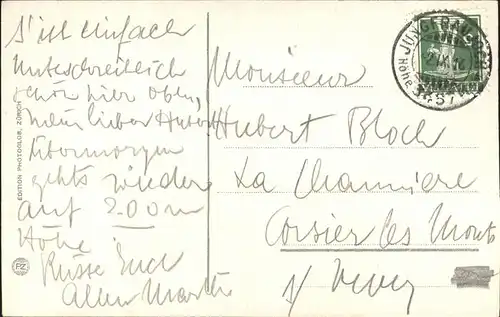 S'ist einfach
unbeschreiblich
schön hier oben,
mein lieber Hubert
Übermorgen
gehts wieder
auf 200m
Höhe.
Küsse Euch
Allen Martha
EDITION PHOTOGLOB, ZÜRICH
PZ
JUNGFRAUJOCH
Höhe 3457
Monsieur
Hubert Bloch
La Chaumière
Corsier les Monts
s/ Vevey